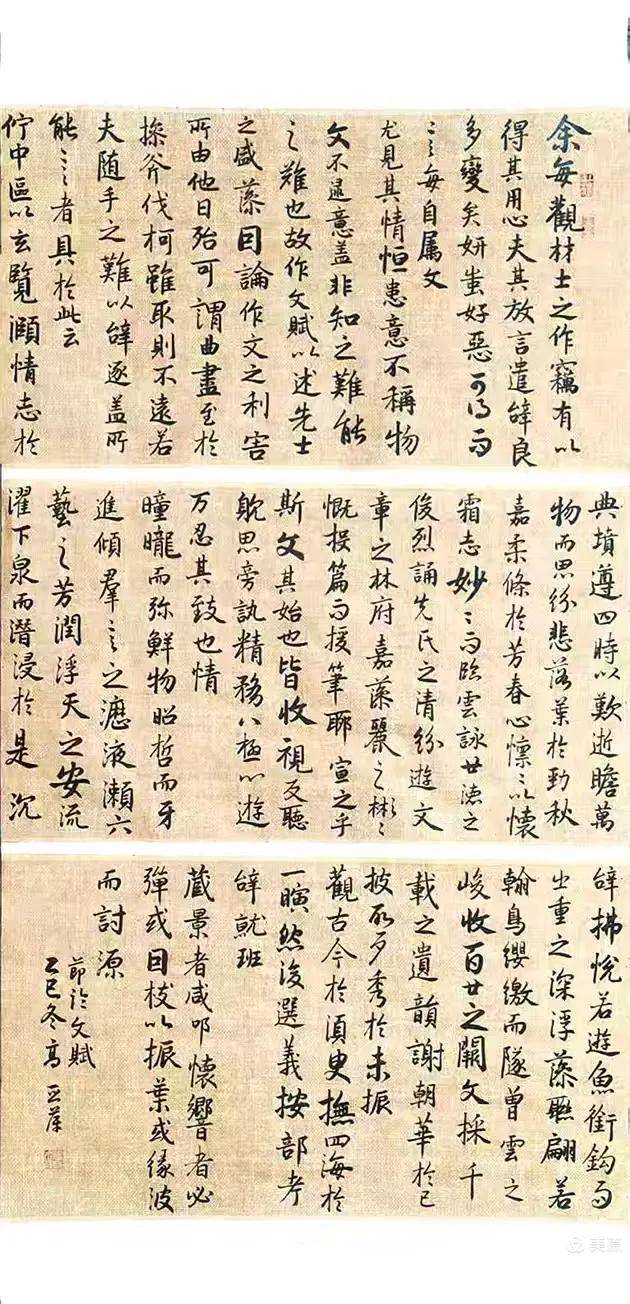 余每觀材士之作竊有以
得其用心夫其放言遣辝良
多變矣妍蚩好惡可得而
言言每自属文
尤見其情恒患意不稱物
文不逮意盖非知之難能
之難也故作文賦以述先士
之盛藻因論作文之利害
所由他日殆可謂曲盡至於
操斧伐柯雖取則不遠若
夫随手之難以辝逐盖所
能言者具於此云
佇中區以玄覽頤情志於
典墳遵四時以歎逝瞻萬
物而思紛悲落葉於勁秋
嘉柔條於芳春心懍々以懷
霜志妙々而臨雲詠世德之
俊烈誦先民之清紛遊文
章之林府嘉藻麗之彬々
慨投篇而援筆聊宣之乎
斯文其始也皆收視反聽
躭思旁訊精務八極心遊
万忍其致也情
曈曨而弥鮮物昭晢而牙
進傾羣言之瀝液漱六
藝之芳潤浮天之安流
濯下泉而潛浸於是沉
辝拂悅若遊魚銜鈎而
出重之深浮藻聮翩若
翰鳥纓繳而墜曾雲之
峻收百世之闕文採千
載之遺韻謝朝華於已
披啓夕秀於未振
觀古今於湏臾撫四海於
一瞑然後選義按部考
辝就班
蔵景者咸叩懷響者必
彈或因枝以振葉或緣波
而討源
節 文賦
乙巳冬高
美篇